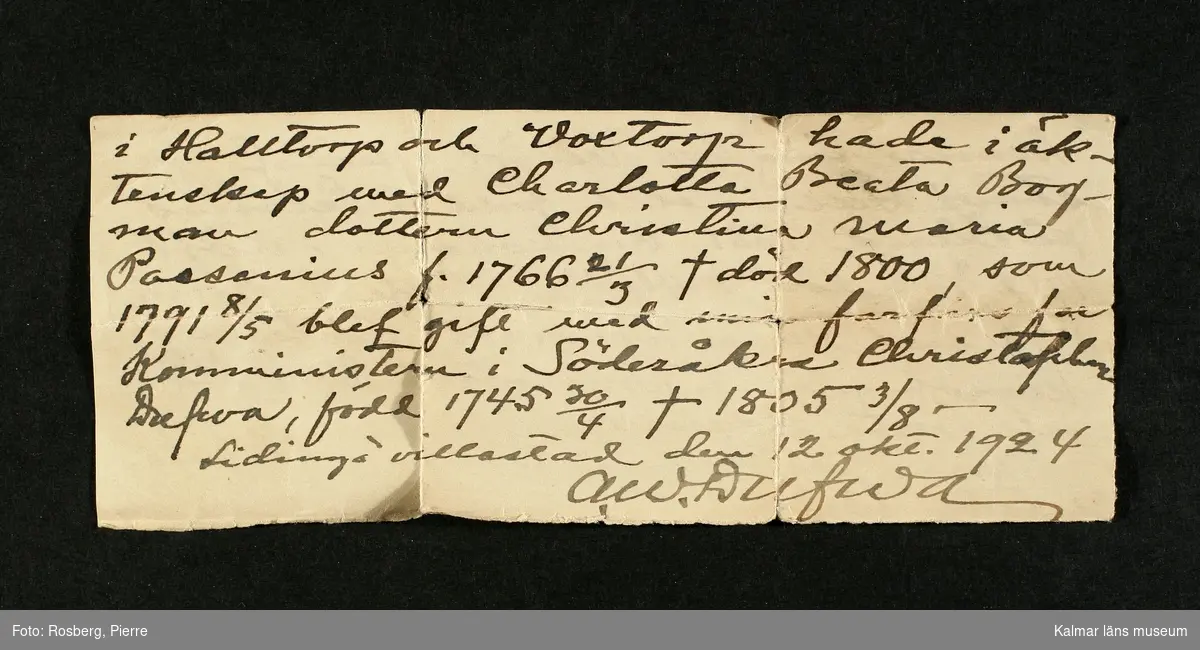 i Halltorp och Voxtorp hade i äk-
tenskap med Charlotta Beata Bog-
man dottern Christina Maria
Passanius f. 1766 21/3 † död 1800, som
1791 8/5 blef gift med min farfars far
Komministern i Söderåkra Christopher
Dufwa, född 1745 30/4 † 1805 3/8 -
Lidingö villastad den 12 okt. 1924
A.W. Dufwa
Foto: Rosberg, Pierre
Kalmar läns museum